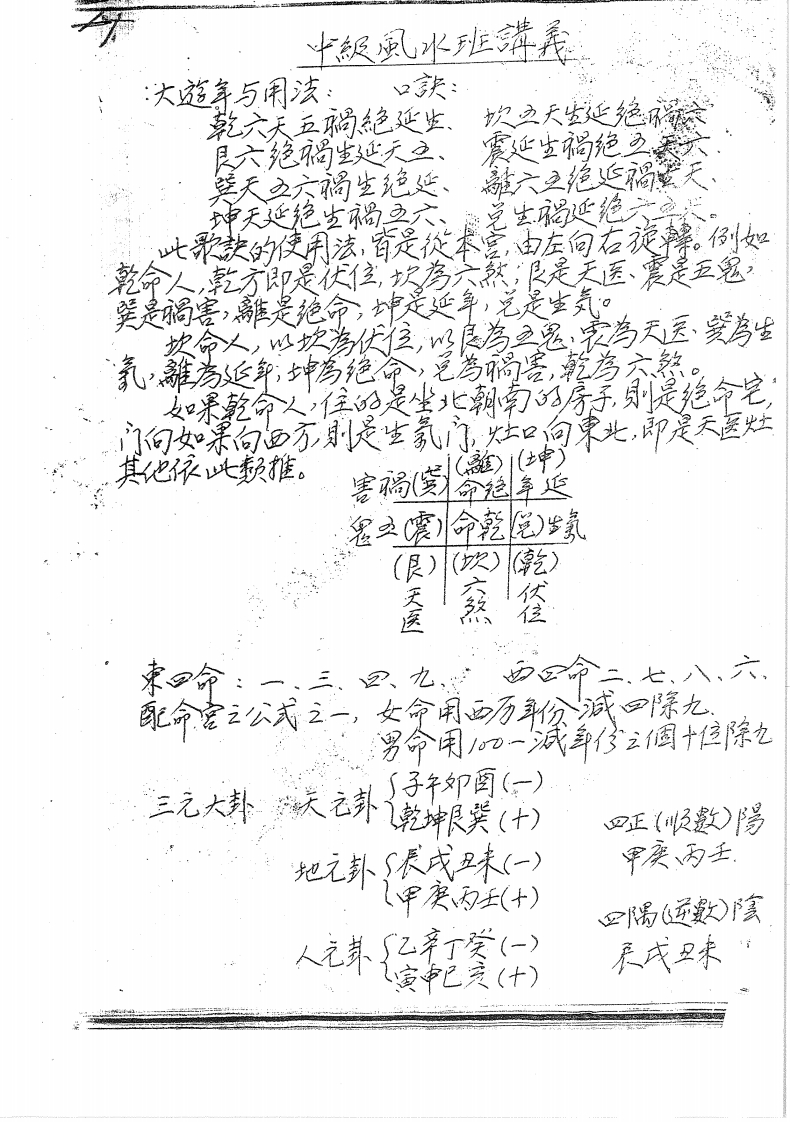 中級風水班講義
:大遊年与用法: 口訣:
乾六天五禍絶延生、 坎五天生延絶禍六
艮六絶禍生延天五、 震延生禍絶五天六、
巽天五六禍生絶延、 離六五絶延禍生天、
坤天延絶生禍五六、 兌生禍延絶六五天。
此歌訣的使用法,皆是從本宮,由左向右旋轉。例如
乾命人,乾方即是伏位,坎為六煞,艮是天医、震是五鬼,
巽是禍害,離是絶命,坤是延年,兌是生気。
坎命人,以坎為伏位,以艮為五鬼、震為天医、巽為生
氣,離為延年,坤為絶命,兌為禍害,乾為六煞。
如果乾命人,住的是坐北朝南的房子,則是絶命宅,
门向如果向西方,則是生氣门,灶口向東北,即是天医灶
其他依此類推。
害禍(巽) (離)命絶 (坤)年延
鬼五(震) 命乾 (兌)生氣
(艮)天医 (坎)六煞 (乾)伏位
東四命:一、三、四、九、 西四命二、七、八、六、
配命宮之公式之一,女命用西历年份減四除九、
男命用100一減年份之個十位除九
三元大卦 天元卦 子午卯酉(一)
乾坤艮巽(十) 四正(順數)陽
甲庚丙壬、
地元卦 辰戌丑未(一)
甲庚丙壬(十)
四隅(逆數)陰
人元卦 乙辛丁癸(一) 辰戌丑未
寅申巳亥(十)